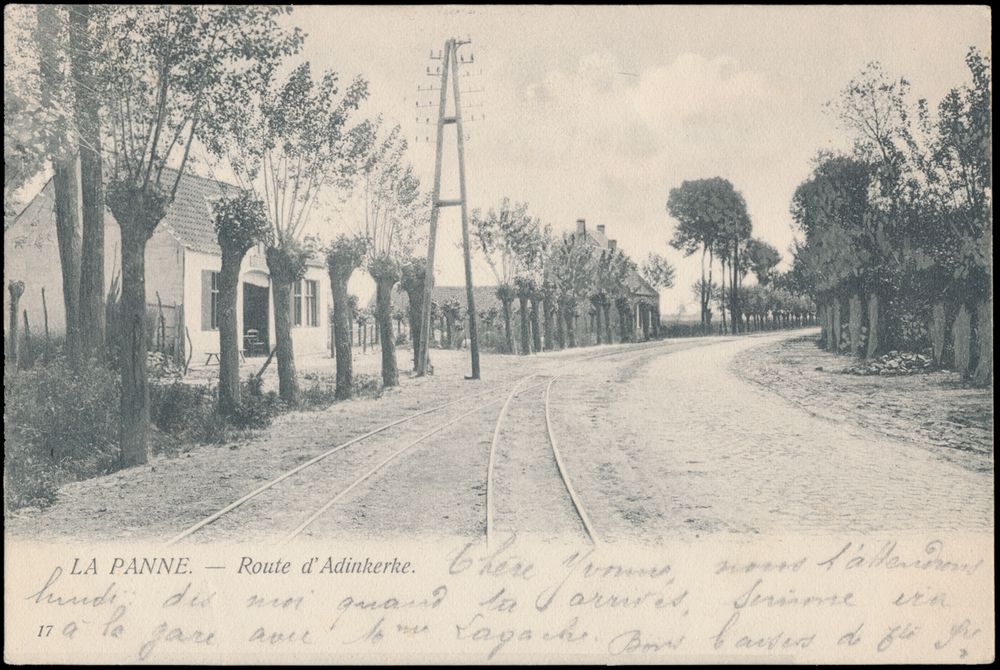 LA PANNE. — Route d'Adinkerke.
Chère Yvonne, nous t'attendrons
lundi: dis moi quand tu arrives,
à la gare avec Mme Lagache. Bons baisers de
17